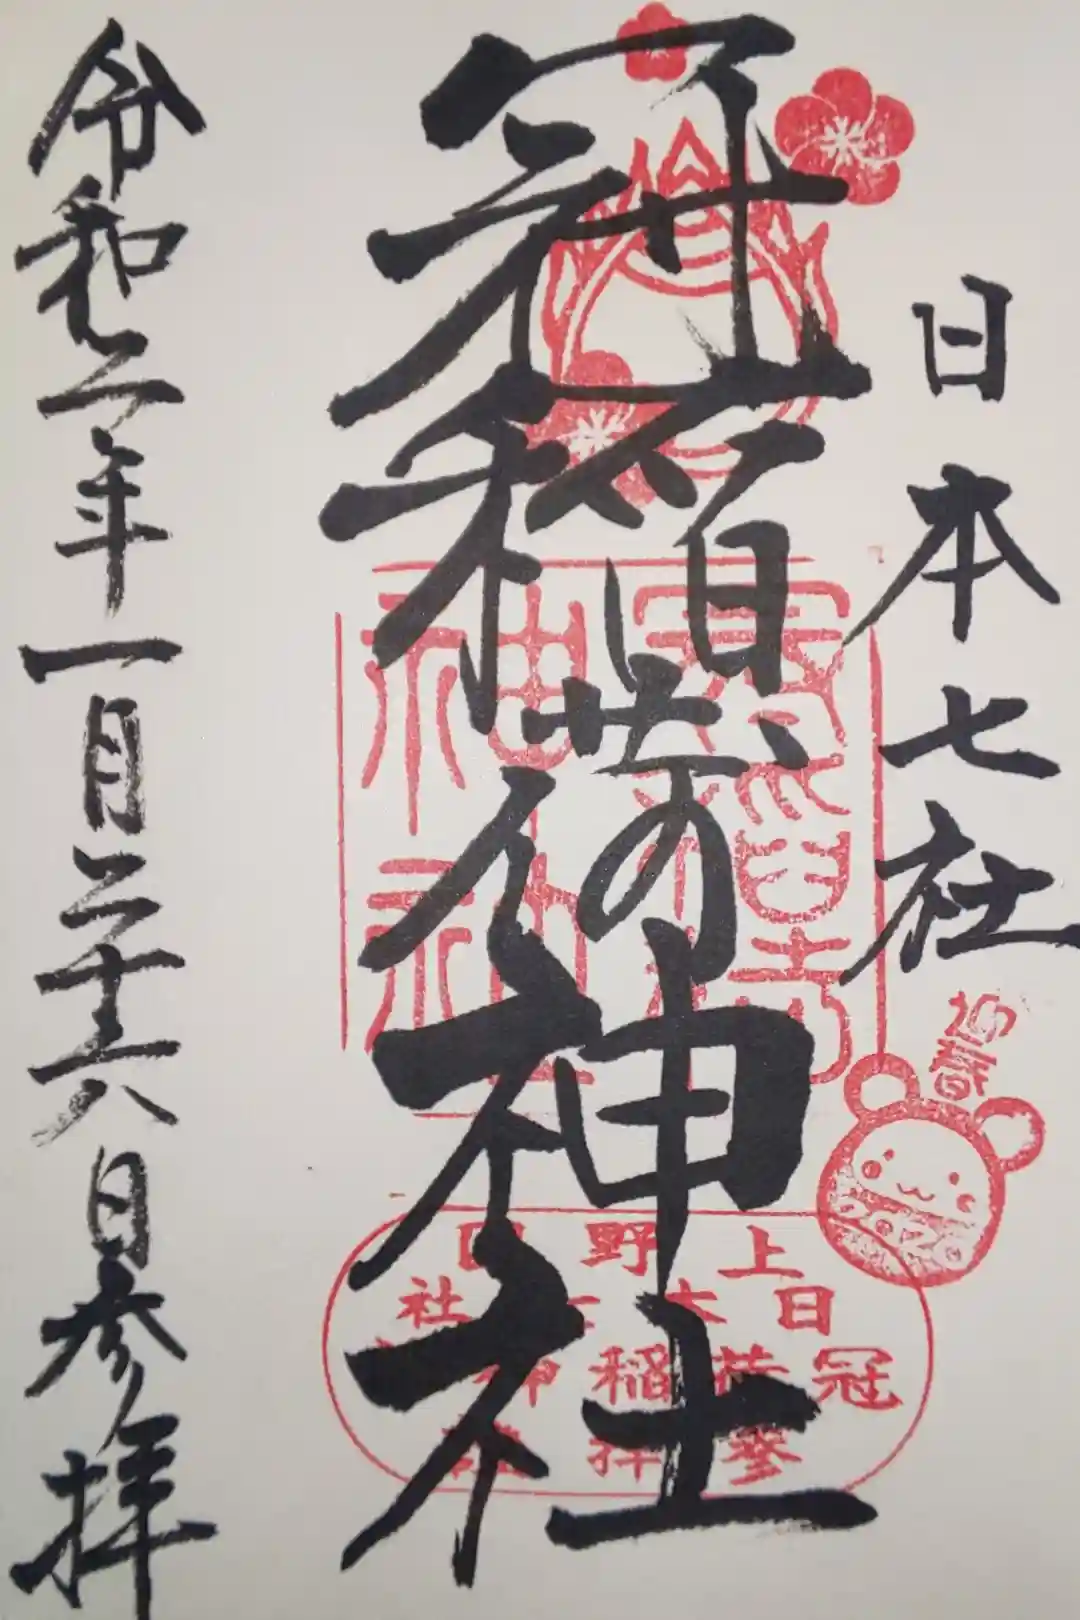 日本七社
冠稲荷神社
令和二年一月二十六日参拝
迎春
上野国
日本七社
冠稲荷神社
参拝